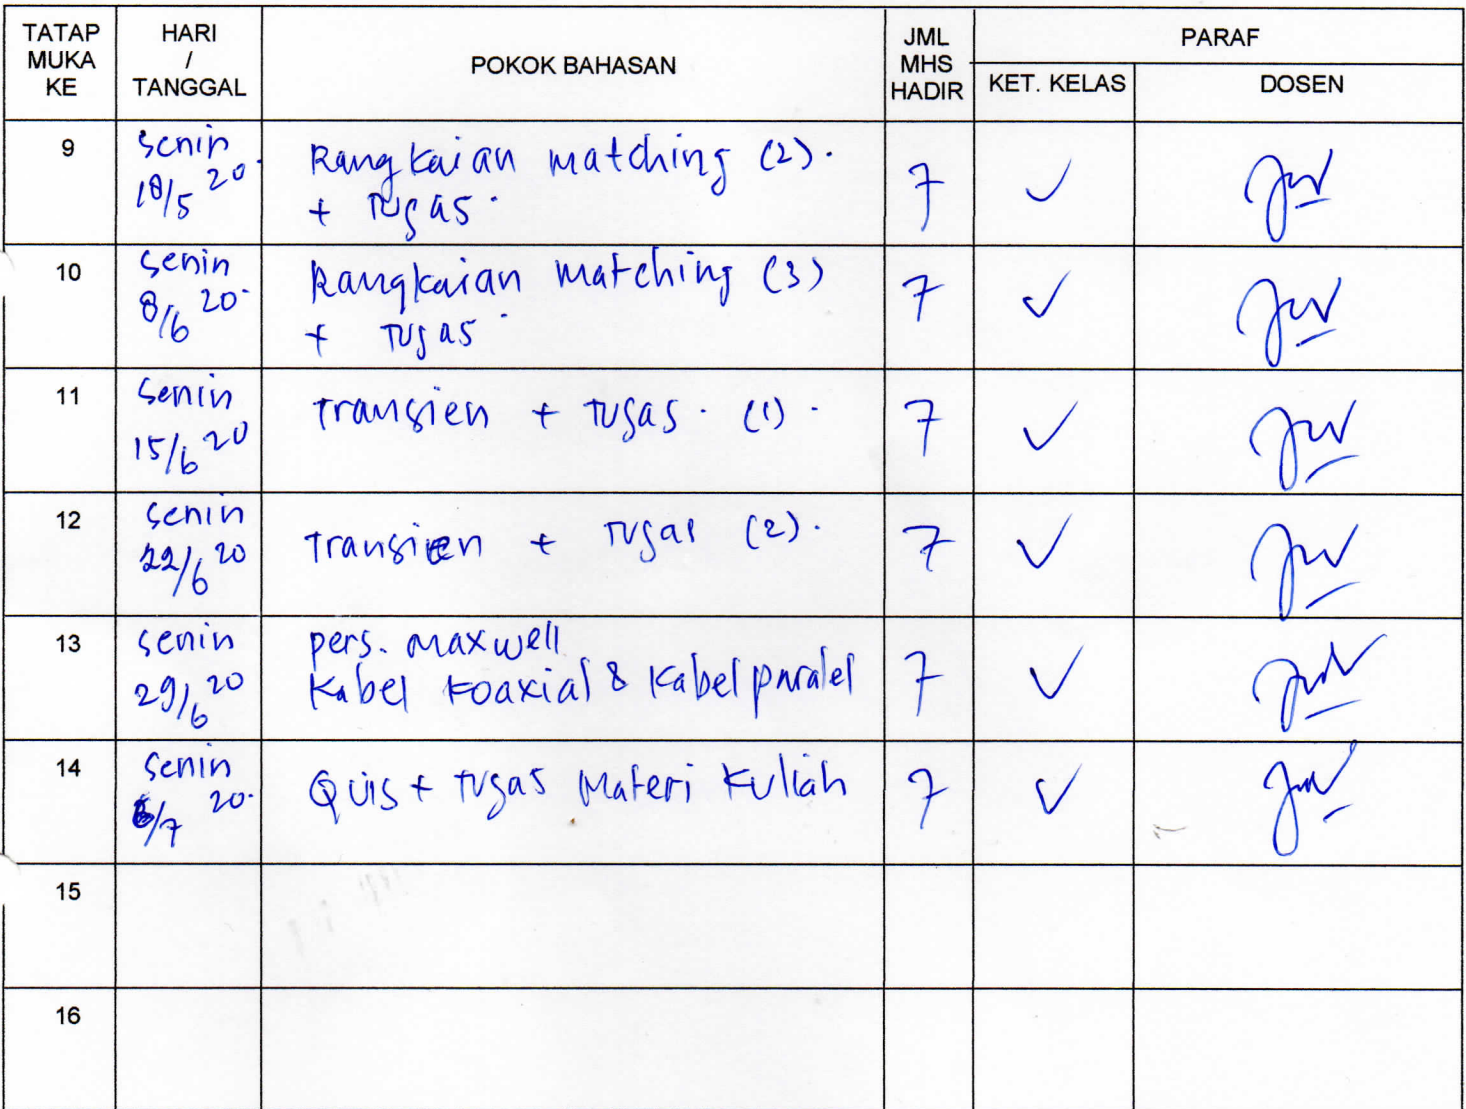 TATAP MUKA KE
HARI / TANGGAL
POKOK BAHASAN
JML MHS HADIR
PARAF
KET. KELAS
DOSEN
9
Senin
18/5 20
Rangkaian matching (2).
+ Tugas.
7
10
Senin
8/6 20
Rangkaian matching (3)
+ Tugas
7
11
Senin
15/6 20
Transien + Tugas. (1).
7
12
Senin
22/6 20
Transien + Tugas (2).
7
13
Senin
29/6 20
pers. Maxwell
Kabel Koaxial & Kabel paralel
7
14
Senin
6/7 20
Quis + Tugas Materi Kuliah
7
15
16